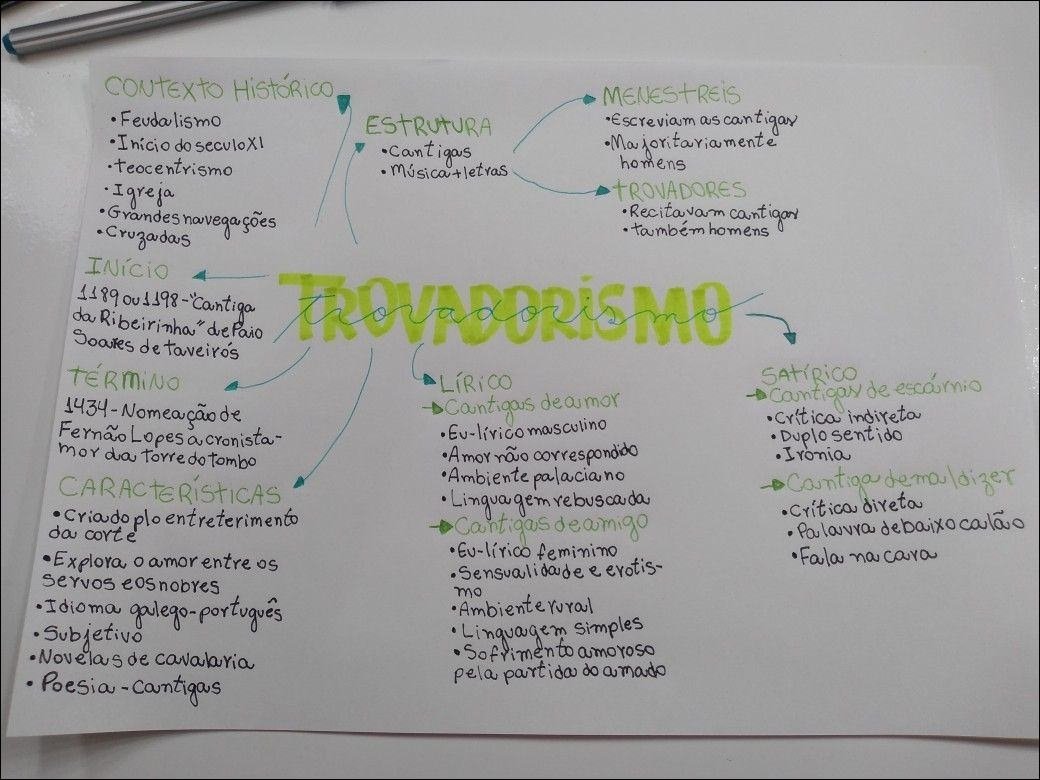 CONTEXTO HISTÓRICO
• Feudalismo
• Início do seculo XI
• teocentrismo
• Igreja
• Grandes navegações
• Cruzadas
ESTRUTURA
• Cantigas
• Música + letras
MENESTREIS
• Escreviam as cantigas
• Majoritariamente
homens
TROVADORES
• Recitavam cantigas
• também homens
INÍCIO
1189 ou 1198 - "Cantiga
da Ribeirinha" de Paio
Soares de taveirós
TROVADORISMO
trovadorismo
TÉRMINO
1434 - Nomeação de
Fernão Lopes a cronista-
mor da torre do tombo
CARACTERÍSTICAS
• Criado plo entreterimento
da corte
• Explora o amor entre os
servos e os nobres
• Idioma galego-português
• Subjetivo
• Novelas de cavalaria
• Poesia - Cantigas
LÍRICO
Cantigas de amor
• Eu-lírico masculino
• Amor não correspondido
• Ambiente palaciano
• Linguagem rebuscada
Cantigas de amigo
• Eu-lírico feminino
• Sensualidade e erotis-
mo
• Ambiente rural
• Linguagem simples
• Sofrimento amoroso
pela partida do amado
SATÍRICO
Cantigas de escárnio
• Crítica indireta
• Duplo sentido
• Ironia
Cantiga de maldizer
• Crítica direta
• Palavra de baixo calão
• Fala na cara